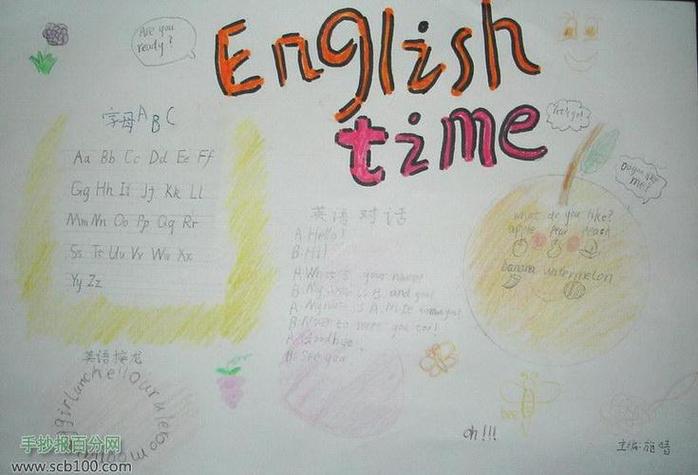 English
time
Are you
ready?
字母ABC
Aa Bb Cc Dd Ee Ff
Gg Hh Ii Jj Kk Ll
Mm Nn Oo Pp Qq Rr
Ss Tt Uu Vv Ww Xx
Yy Zz
英语对话
A. Hello!
B. Hi!
A. What's your name?
B. My name is B. and you?
A. My name is A.
B. to meet you too!
A. Goodbye.
B. See you
Let's go!
Do you like
me?
what do you like?
apple pear peach
banana watermelon
英语接龙
girlunchellourule
bee
oh!!!
主编:
手抄报百分网
www.scb100.com